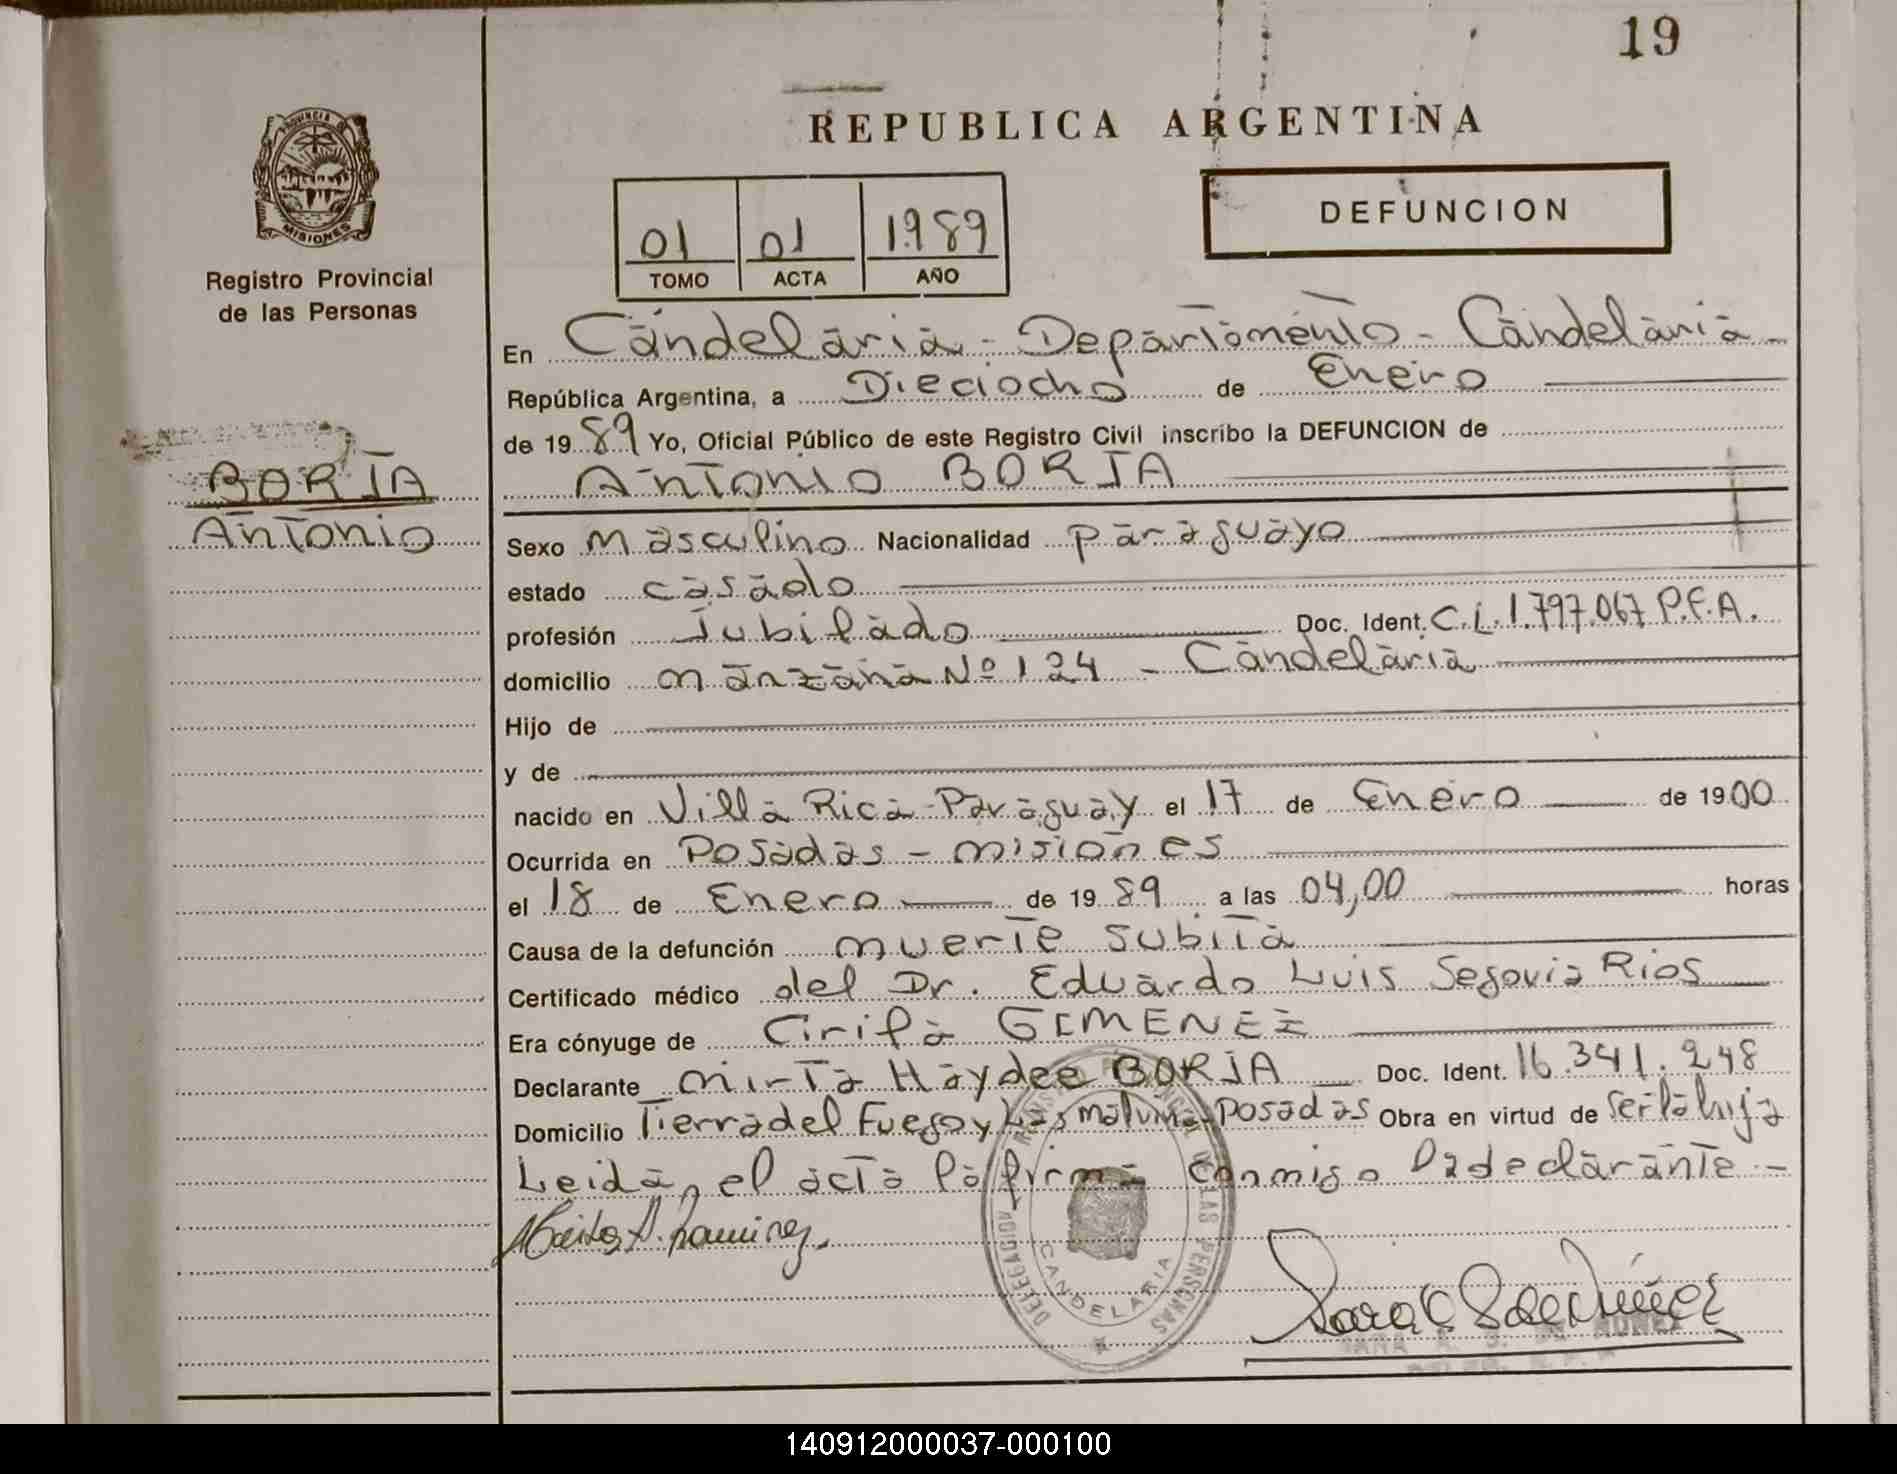 19
REPUBLICA ARGENTINA
PROVINCIA DE
MISIONES
Registro Provincial
de las Personas
01 01 1989
TOMO ACTA AÑO
DEFUNCION
BORJA
Antonio
En Candelaria - Departamento - Candelaria
República Argentina, a Dieciocho de Enero
de 1989 Yo, Oficial Público de este Registro Civil inscribo la DEFUNCION de
Antonio BORJA
Sexo masculino Nacionalidad paraguayo
estado casado
profesión Jubilado Doc. Ident. C.I. 1.797.067 P.F.A.
domicilio manzana Nº 124 - Candelaria
Hijo de
y de
nacido en Villa Rica-Paraguay el 17 de Enero de 1900
Ocurrida en Posadas - misiones
el 18 de Enero de 1989 a las 04,00 horas
Causa de la defunción muerte subita
Certificado médico del Dr. Eduardo Luis Segovia Rios
Era cónyuge de Cirila GIMENEZ
Declarante mirta Haydee BORJA Doc. Ident. 16.341.248
Domicilio Tierra del Fuego y Las malvinas Posadas Obra en virtud de ser la hija
Leida, el acta la firma conmigo la declarante -
DELEGACION
DE LAS PERSONAS
CANDELARIA
140912000037-000100